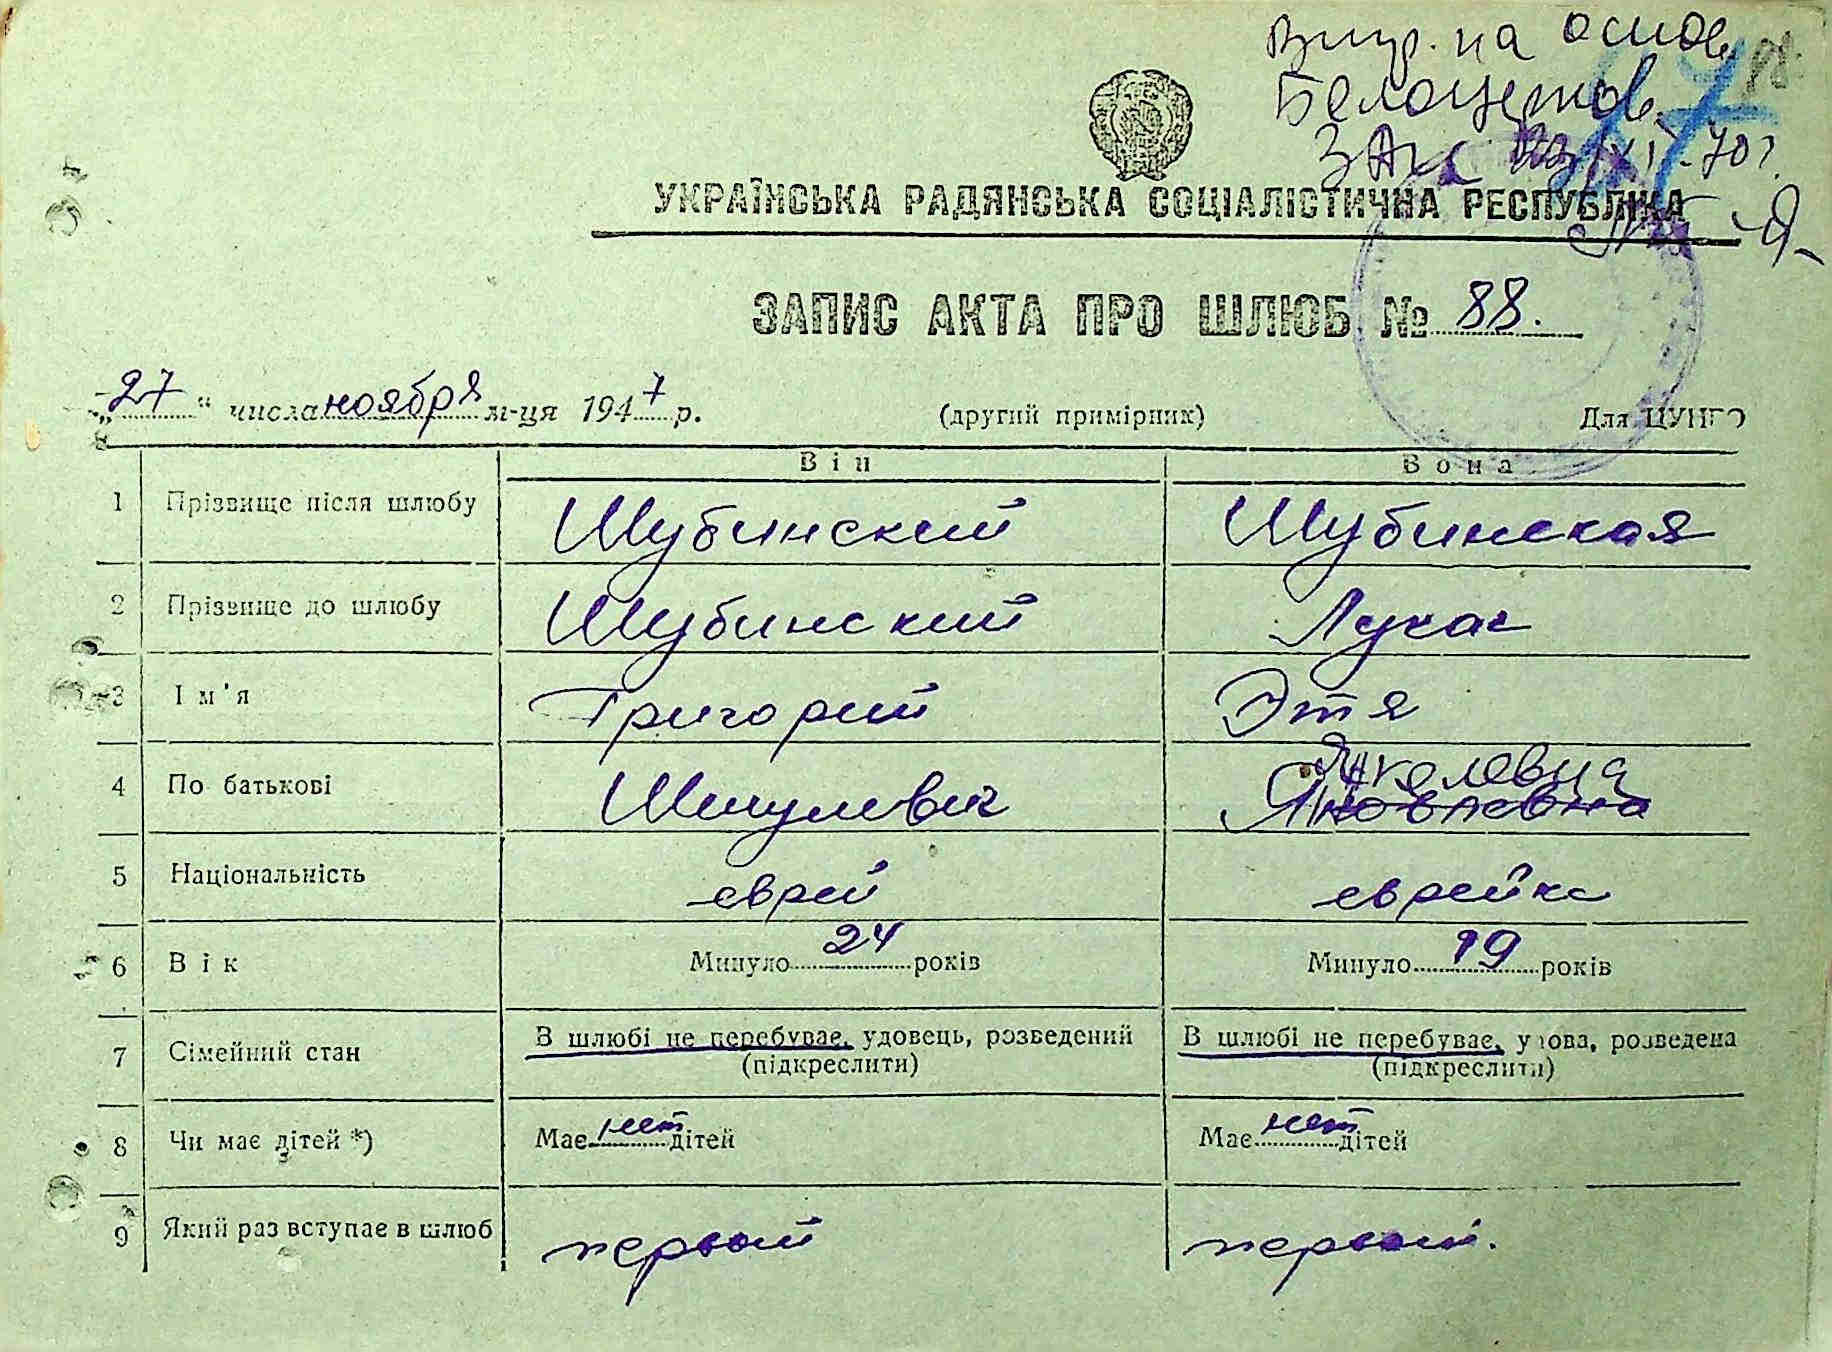 на основ
Белоцерков.
ЗАГС XI-70г.
УКРАЇНСЬКА РАДЯНСЬКА СОЦІАЛІСТИЧНА РЕСПУБЛІКА
ЗАПИС АКТА ПРО ШЛЮБ № 88.
„27“ числа ноября м-ця 1947 р. (другий примірник) Для ЦУНГО
Він Вона
1 Прізвище після шлюбу Шубинский Шубинская
2 Прізвище до шлюбу Шубинский Лукас
3 Ім'я Григорий Этя
Янкелевна
4 По батькові Шмулевич Яковлевна
5 Національність еврей еврейка
6 Вік Минуло 24 років Минуло 19 років
7 Сімейний стан В шлюбі не перебуває, удовець, розведений В шлюбі не перебуває, удова, розведена
(підкреслити) (підкреслити)
8 Чи має дітей *) Має нет дітей Має нет дітей
9 Який раз вступає в шлюб первый первый.